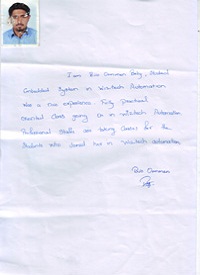 I am Biss Oomman Baby, Student
Embedded System in Wisetech Automation
Was a nice experience. Fully practical
oriented class going on in wisetech Automation
Professional staffs are taking classes for the
students who joined here in wisetech automation
Biss Oomman